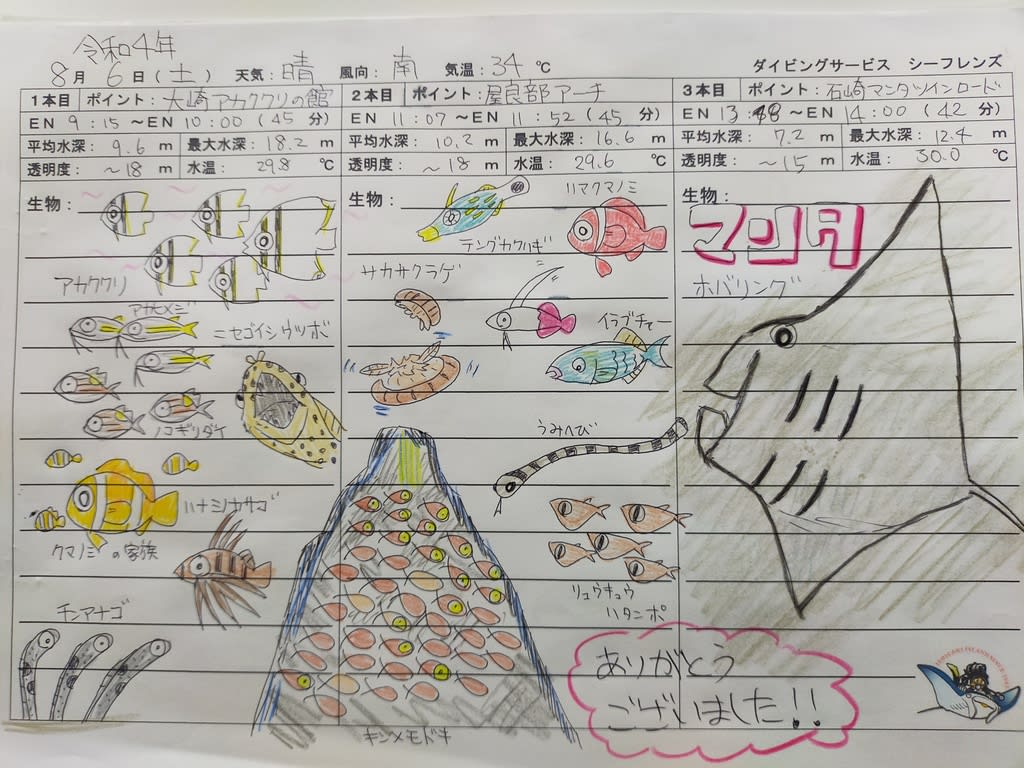 令和4年
8月 6日(土) 天気:晴 風向:南 気温:34℃
ダイビングサービス シーフレンズ
1本目 ポイント:大崎アカククリの館
EN 9:15〜EN 10:00 (45分)
平均水深: 9.6 m 最大水深: 18.2 m
透明度: 〜18 m 水温: 29.8 ℃
生物:
アカククリ
アカヒメジ
ニセゴイシウツボ
ノコギリダイ
ハナミノカサゴ
クマノミの家族
チンアナゴ
2本目 ポイント:屋良部アーチ
EN 11:07〜EN 11:52 (45分)
平均水深: 10.2 m 最大水深: 16.6 m
透明度: 〜18 m 水温: 29.6 ℃
生物:
ハマクマノミ
テングカワハギ
サカサクラゲ
イラブチャー
うみへび
リュウキュウ
ハタンポ
キンメモドキ
3本目 ポイント:石崎マンタツインロード
EN 13:18〜EN 14:00 (42分)
平均水深: 7.2 m 最大水深: 12.4 m
透明度: 〜15 m 水温: 30.0 ℃
生物:
マンタ
ホバリング
ありがとう
ございました!!